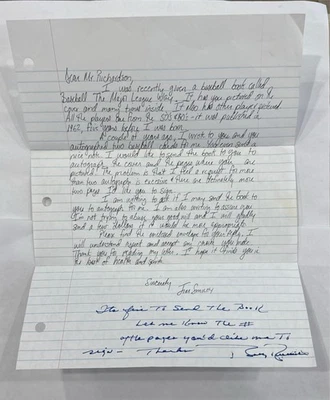 Dear Mr. Richardson,
I was recently given a baseball book called
Baseball The Major League Way. It has you pictured on the
cover and many times inside. It also has other players pictured.
All the players are from the 50s &60s. It was published in
1962, two years before I was born.
A couple of years ago, I wrote to you and you
autographed two baseball cards to me. You even sent a
nice note. I would like to send the book to you to
autograph the cover and the pages where you are
pictured. The problem is that I feel a request for more
than two autographs is excessive & there are definitely more
two pages I'd like you to sign.
I am writing to ask if I may send the book to
you to autograph to me. I am also writing to assure you
I'm not trying to abuse your good will and I will gladly
send a few dollars if it would be more appropriate.
Please find the enclosed envelope for your reply. I
will understand and accept any
Thank you for reading my letter. I hope it finds you in
the best of health and spirit.
Sincerely,
Its fine To Send The Book
Let me Know The #
of the pages you'd like me To
sign - Thanks